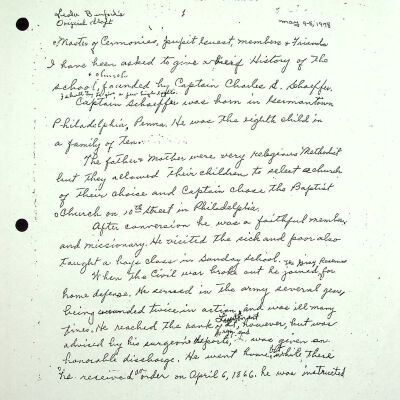 Leola Burford's
Original Script
1
May 7-8, 1998
Master of Cermonies, pulpit Guest, members & Friends
I have been asked to give a brief History of the
& Church
school, founded by Captain Charles S. Schaeffer.
I shall try to give a few high lights.
Captain Schaeffer was born in Germantown
Philadelphia, Penna. He was the eighth child in
a family of ten.
The father & Mother were very religious Methodist
but they allowed their children to select a church
of their choise and Captain chose the Baptist
Church on 10th Street in Philadelphia.
After conversion he was a faithful member
and missionary. He visited the sick and poor also
taught a boys class in Sunday school. The Gray Reserves
When the Civil war broke out he joined for
home defense. He served in the army several years,
being wounded twice in action and was ill many
times. He reached the rank of Lieutenant, however, but was
advised by his surgeons reports, & was given an
honorable discharge. He went home, but while there
he received an order on April 6, 1866. he was instructed